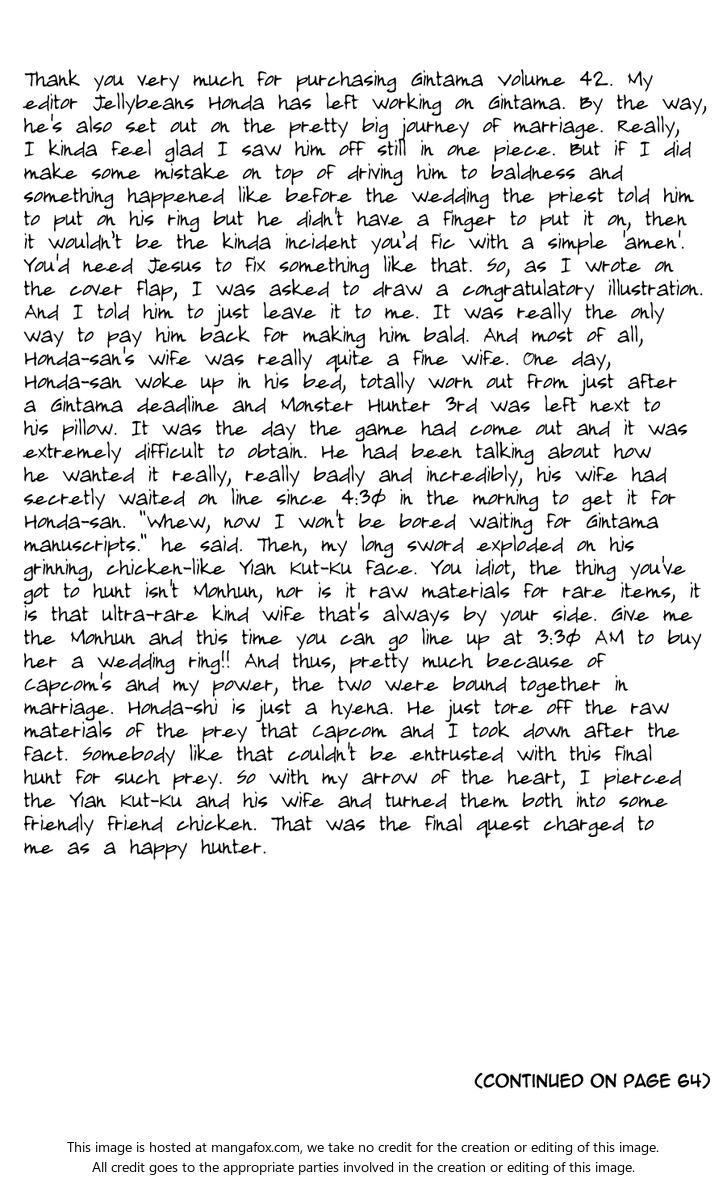 Thank you very much for purchasing Gintama Volume 42. My
editor Jellybeans Honda has left working on Gintama. By the way,
he's also set out on the pretty big journey of marriage. Really,
I kinda feel glad I saw him off still in one piece. But if I did
make some mistake on top of driving him to baldness and
something happened like before the wedding the priest told him
to put on his ring but he didn't have a finger to put it on, then
it wouldn't be the kinda incident you'd fic with a simple 'amen'.
You'd need Jesus to fix something like that. So, as I wrote on
the cover flap, I was asked to draw a congratulatory illustration.
And I told him to just leave it to me. It was really the only
way to pay him back for making him bald. And most of all,
Honda-san's wife was really quite a fine wife. One day,
Honda-san woke up in his bed, totally worn out from just after
a Gintama deadline and Monster Hunter 3rd was left next to
his pillow. It was the day the game had come out and it was
extremely difficult to obtain. He had been talking about how
he wanted it really, really badly and incredibly, his wife had
secretly waited on line since 4:30 in the morning to get it for
Honda-san. "Whew, now I won't be bored waiting for Gintama
manuscripts." he said. Then, my long sword exploded on his
grinning, chicken-like Yian Kut-Ku face. You idiot, the thing you've
got to hunt isn't Monhun, nor is it raw materials for rare items, it
is that ultra-rare kind wife that's always by your side. Give me
the Monhun and this time you can go line up at 3:30 AM to buy
her a wedding ring!! And thus, pretty much because of
Capcom's and my power, the two were bound together in
marriage. Honda-shi is just a hyena. He just tore off the raw
materials of the prey that Capcom and I took down after the
fact. Somebody like that couldn't be entrusted with this final
hunt for such prey. So with my arrow of the heart, I pierced
the Yian Kut-Ku and his wife and turned them both into some
friendly friend chicken. That was the final quest charged to
me as a happy hunter.
(CONTINUED ON PAGE 64)
This image is hosted at mangafox.com, we take no credit for the creation or editing of this image.
All credit goes to the appropriate parties involved in the creation or editing of this image.